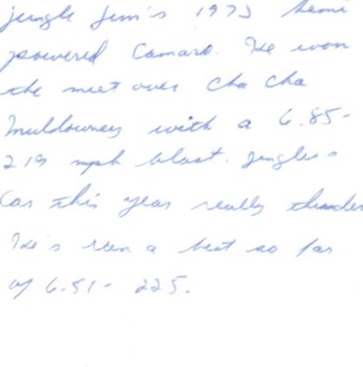 jungle Jim's 1973 Hemi
powered Camaro. He won
the meet over Cha Cha
Muldowney with a 6.85-
219 mph blast. Jungle's
Car this year really thunder
He's run a best so far
of 6.51- 225.